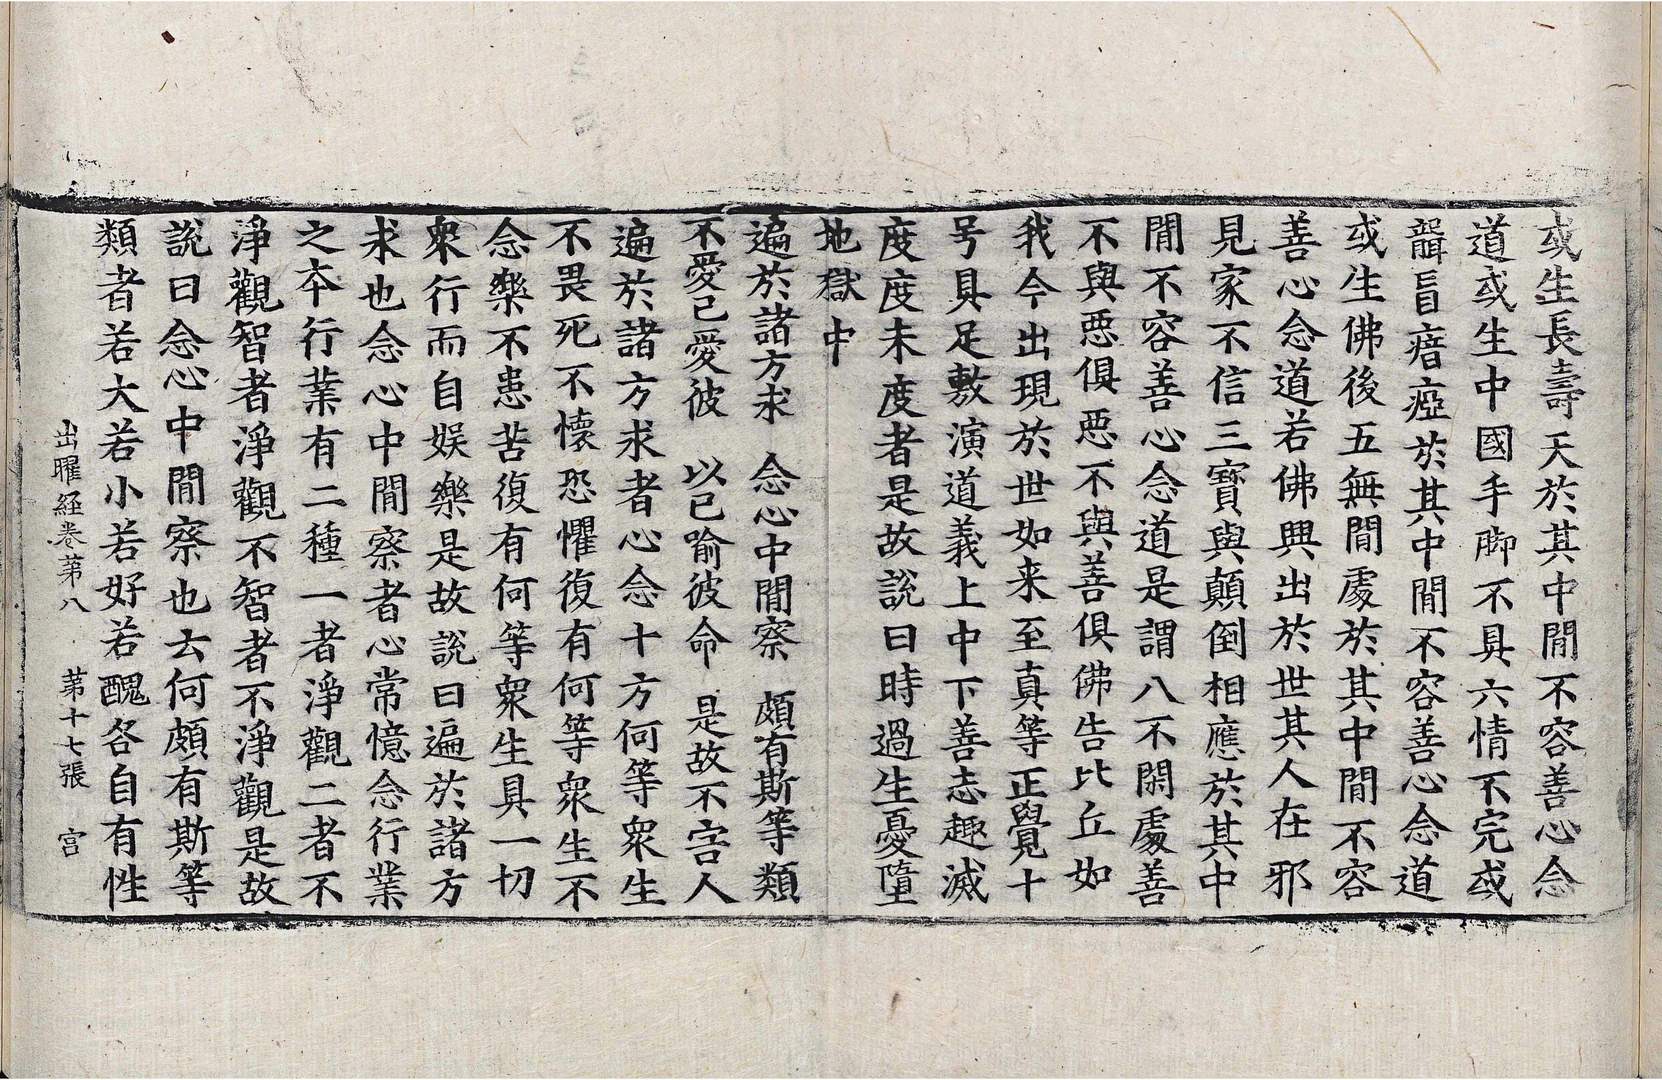 或生長壽天於其中閒不容善心念
道或生中國手脚不具六情不完或
聾盲瘖瘂於其中閒不容善心念道
或生佛後五無閒處於其中閒不容
善心念道若佛興出於世其人在邪
見家不信三寶與顛倒相應於其中
閒不容善心念道是謂八不閑處善
不與惡俱惡不與善俱佛告比丘如
我今出現於世如来至真等正覺十
号具足敷演道義上中下善志趣滅
度度未度者是故說曰時過生憂墮
地獄中
遍於諸方求　念心中閒察　頗有斯等類
不愛己愛彼　以己喻彼命　是故不害人
遍於諸方求者心念十方何等衆生
不畏死不懷恐懼復有何等衆生不
念樂不患苦復有何等衆生具一切
衆行而自娛樂是故說曰遍於諸方
求也念心中閒察者心常憶念行業
之本行業有二種一者淨觀二者不
淨觀智者淨觀不智者不淨觀是故
說曰念心中閒察也云何頗有斯等
類者若大若小若好若醜各自有性
出曜経卷第八　第十七張　宫